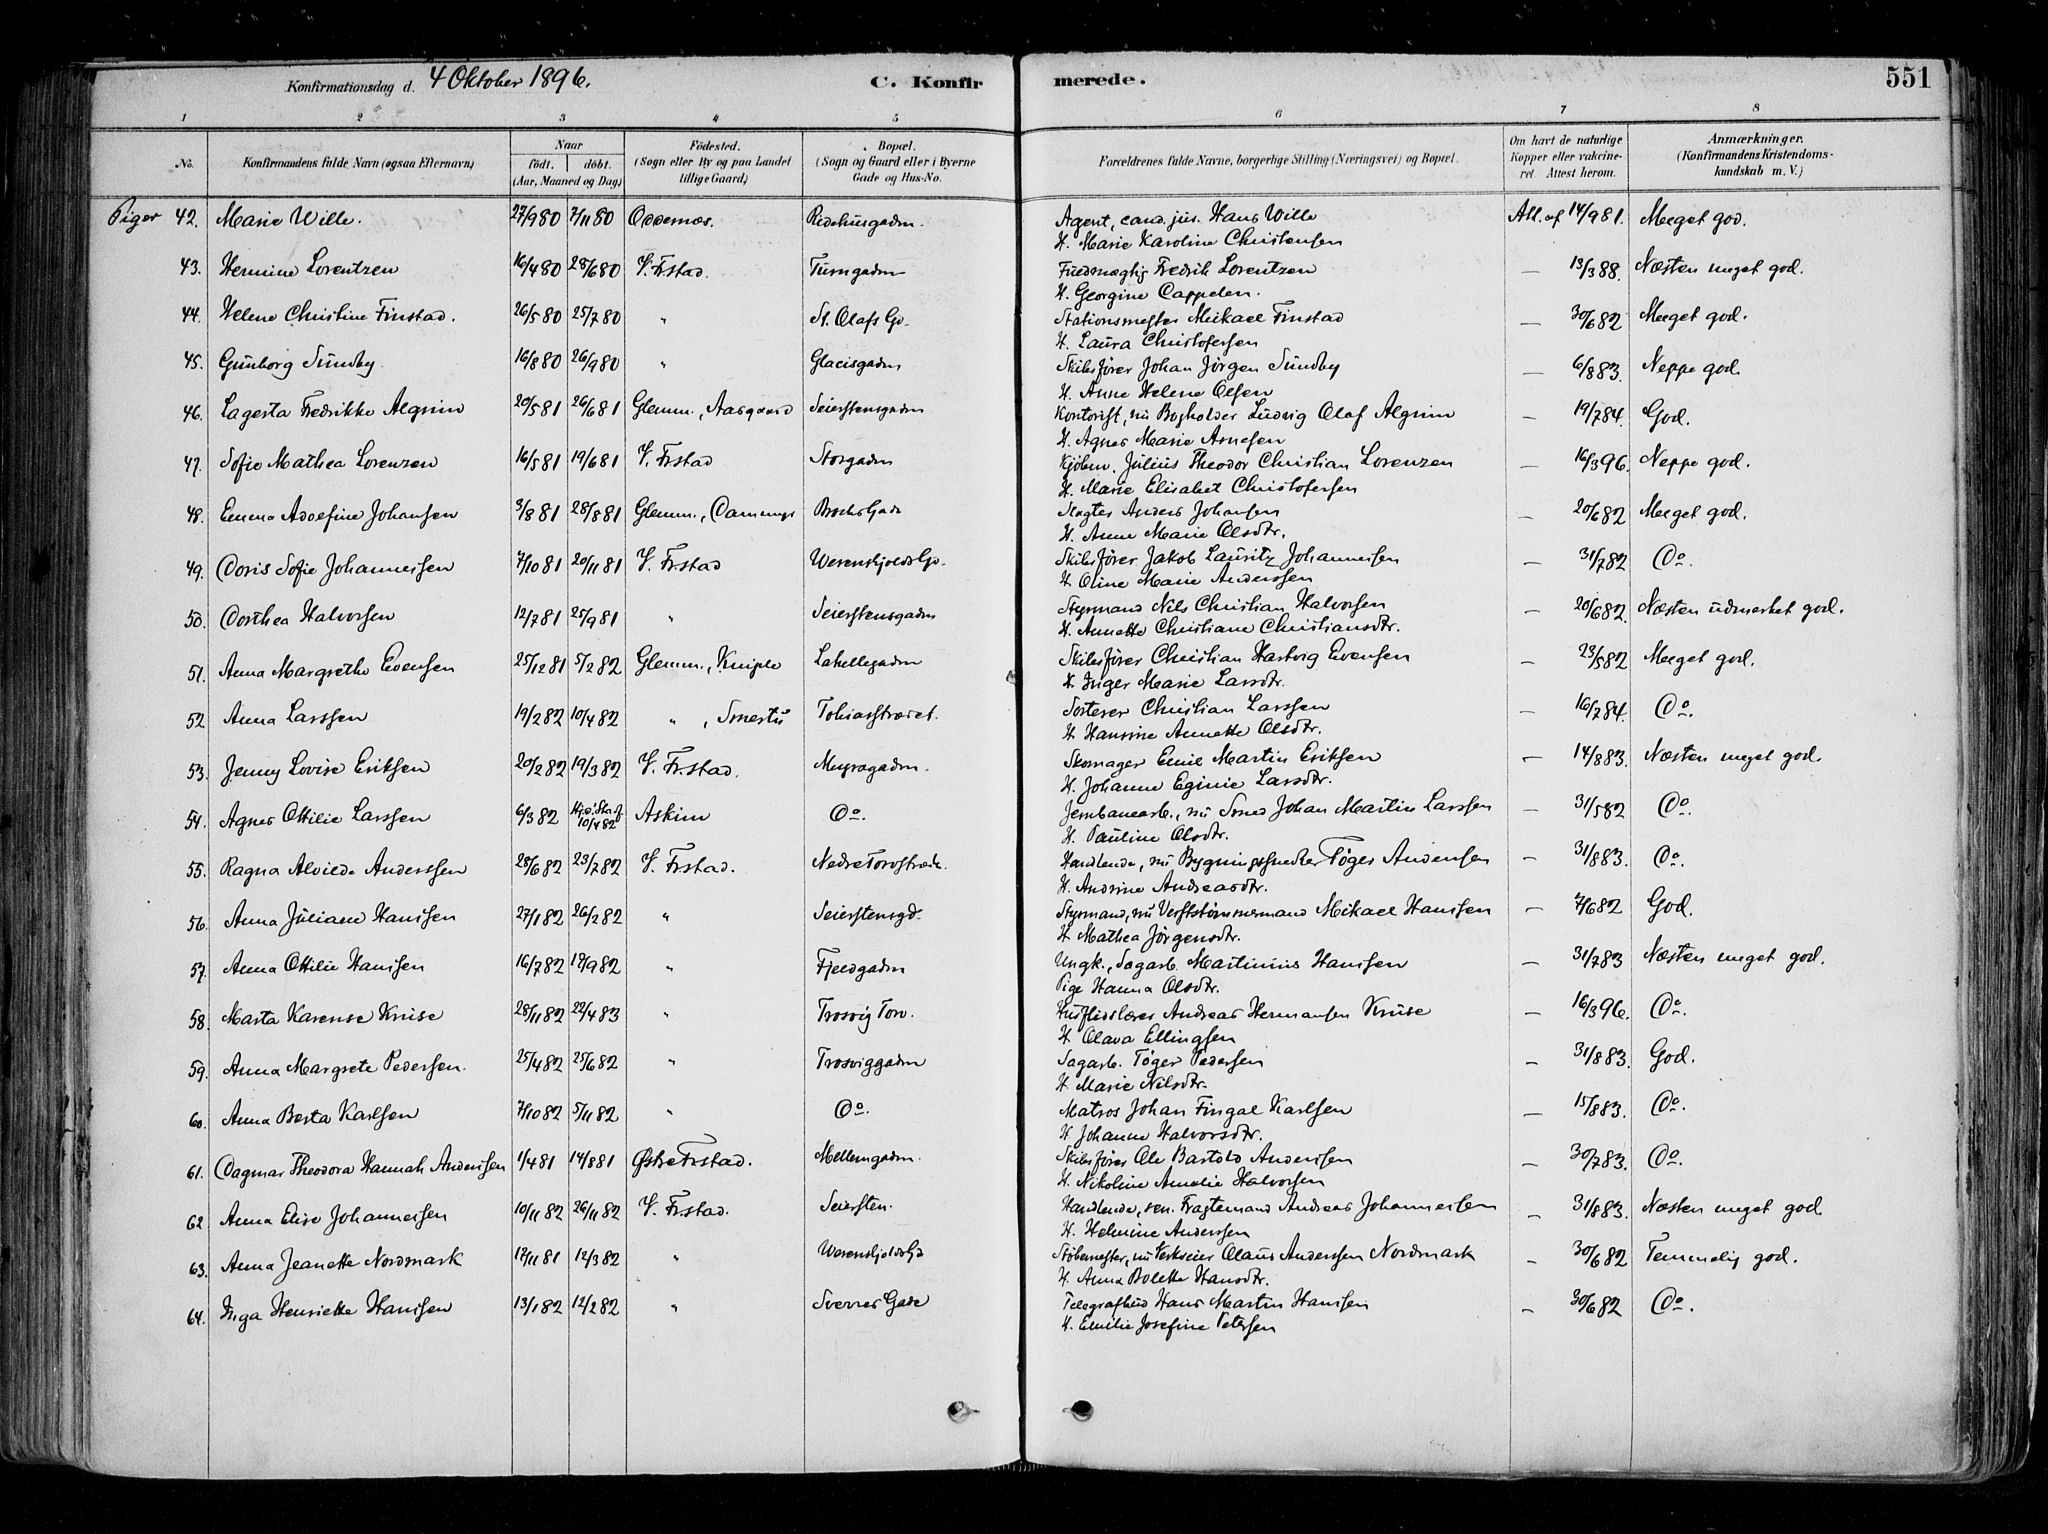 Konfirmationsdag d. 4 Oktober 1896.
C. Konfirmerede.
551
1 2 3 4 5 6 7 8
No.
Konfirmandens fulde Navn (ogsaa Efternavn)
Naar
født. døbt.
(Aar, Maaned og Dag)
Födested.
(Sogn eller By og paa Landet
tillige Gaard)
Bopæl.
(Sogn og Gaard eller i Byerne
Gade og Hus-No.
Forældrenes fulde Navne, borgerlige Stilling (Næringsvei) og Bopæl.
Om havt de naturlige
Kopper eller vakcine-
ret. Attest herom.
Anmærkninger.
(Konfirmandens Kristendoms-
kundskab m. V.)
Piger 42. Marie Wille. 27/9 80 7/11 80 Oddernes. Ridehusgaden. Agent, cand. jur. Hans Wille Att. af 14/9 81. Meget god.
H. Marie Karoline Christensen
43. Hermine Lorentzen 16/4 80 28/6 80 V. Frstad. Turngaden Fuldmægtig Fredrik Lorentzen — 13/3 88. Næsten meget god.
H. Georgine Cappelen.
44. Helene Christine Finstad. 26/5 80 25/7 80 " St. Olafs Gd. Stationsmester Mikael Finstad — 30/6 82 Meget god.
H. Laura Christofersen
45. Gunborg Sundby 16/8 80 26/9 80 " Glacisgaden Skibsfører Johan Jørgen Sundby — 6/8 83. Neppe god.
H. Anne Helene Olsen
46. Lagerta Fredrikke Algrim 20/5 81 26/6 81 Glemm., Aasgaard Seierstensgaden Kontorist, nu Bogholder Ludvig Olaf Algrim — 19/7 84. God.
H. Agnes Marie Arnesen
47. Sofie Mathea Lorenzen 16/5 81 19/6 81 V. Frstad Storgaden Kjøbm. Julius Theodor Christian Lorenzen — 16/3 96. Neppe god.
H. Marie Elisabet Christofersen
48. Emma Adolfine Johansen 3/8 81 28/8 81 Glemm., Dammyr Brochs Gade Slagter Anders Johansen — 20/6 82 Meget god.
H. Anne Marie Olsdtr.
49. Doris Sofie Johannessen 7/10 81 20/11 81 V. Frstad Werenskjolds Gd. Skibsfører Jakob Lauritz Johannessen — 31/7 82 Do.
H. Oline Marie Anderssen
50. Dorthea Halvorsen 12/7 81 25/9 81 " Seierstensgaden Styrmand Nils Christian Halvorsen — 20/6 82. Næsten udmerket god.
H. Annette Christiane Christiansdtr.
51. Anna Margrethe Evensen 25/12 81 5/2 82 Glemm., Kniple Labellegaden Skibsfører Christian Hartvig Evensen — 23/5 82 Meget god.
H. Inger Marie Larsdtr.
52. Anna Larssen 19/2 82 10/4 82 " , Smertu Tobiasstrædet. Sorterer Christian Larssen — 16/7 84. Do.
H. Hansine Annette Olsdtr.
53. Jenny Lovise Eriksen 20/2 82 19/3 82 V. Frstad. Myragaden. Skomager Emil Martin Eriksen — 14/8 83. Næsten meget god.
H. Johanne Eginie Larsdtr.
54. Agnes Ottilie Larssen 6/3 82 10/4 82 Askim Do. Jernbanearb., nu Smed Johan Martin Larssen — 31/5 82 Do.
H. Pauline Olsdtr.
55. Ragna Alvilde Anderssen 28/6 82 23/7 82 V. Frstad. Nedre Torvstræde. Handlende, nu Bygningssnedker Tøger Andersen — 31/8 83. Do.
H. Andrine Andreasdtr.
56. Anna Juliane Hanssen 27/1 82 26/2 82 " Seierstensgd. Styrmand, nu Verftstømmermand Mikael Hanssen — 7/6 82 God.
H. Mathea Jørgensdtr.
57. Anna Ottilie Hanssen 16/7 82 17/9 82 " Fjeldgaden Ungk., Sagarb. Martinius Hanssen — 31/7 83 Næsten meget god.
Pige Hanna Olsdtr.
58. Marta Karense Kruse 28/11 82 22/4 83 " Trosvig Torv. Husflidslærer Andreas Hermansen Kruse — 16/3 96. Do.
H. Olava Ellingsen
59. Anna Margrete Pedersen. 25/4 82 25/6 82 " Trosviggaden Sagarb. Tøger Pedersen — 31/8 83. God.
H. Marie Nilsdtr.
60. Anna Berta Karlsen 7/10 82 5/11 82 " Do. Matros Johan Fingal Karlsen — 15/8 83. Do.
H. Johanne Halvorsdtr.
61. Dagmar Theodora Hannah Anderssen 1/4 81 14/8 81 Østre Frstad. Mellemgaden. Skibsfører Ole Bartold Anderssen — 30/7 83. Do.
H. Nikoline Amalie Halvorsen
62. Anna Elise Johannessen 10/11 82 26/11 82 V. Frstad. Seiersten. Handlende, sen. Fragtemand Andreas Johannessen — 31/8 83. Næsten meget god.
H. Helmine Anderssen
63. Anna Jeanette Nordmark 17/11 81 12/3 82 " Werenskjolds Gd Støbemester, nu Verkseier Olaus Anderssen Nordmark — 30/6 82 Temmelig god.
H. Anna Bolette Hansdtr.
64. Inga Henriette Hanssen 13/1 82 12/2 82 " Sverres Gade Telegrafbud Hans Martin Hanssen — 30/6 82 Do.
H. Emilie Josefine Petersen